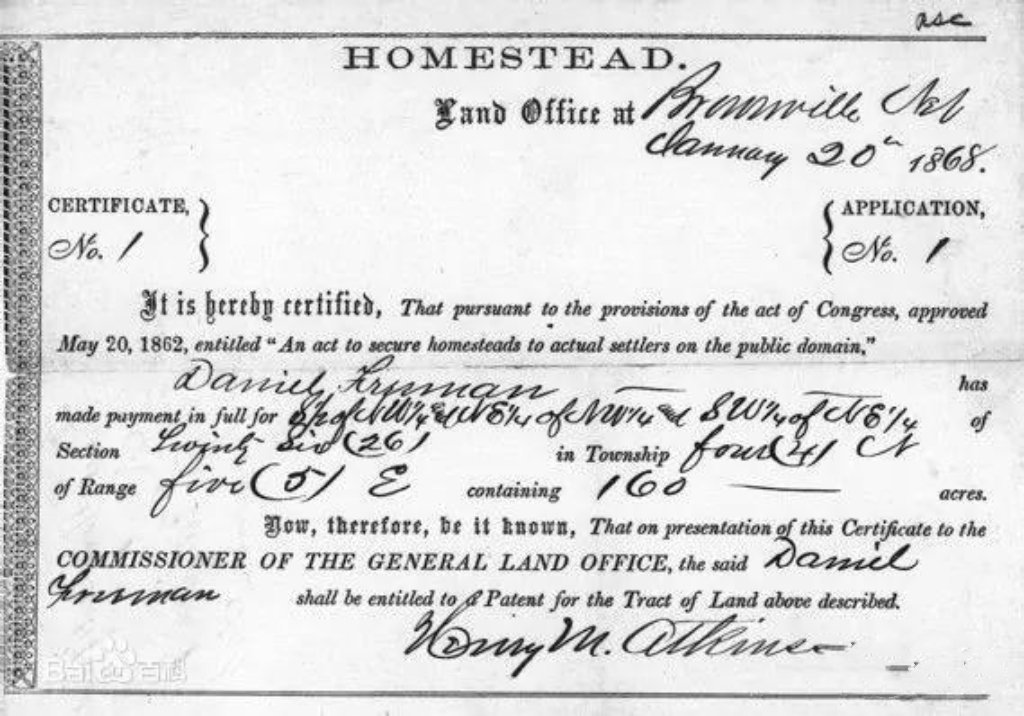 asc
HOMESTEAD.
Land Office at Brownville Neb
January 20th 1868.
CERTIFICATE, APPLICATION,
No. 1 No. 1
It is hereby certified, That pursuant to the provisions of the act of Congress, approved
May 20, 1862, entitled "An act to secure homesteads to actual settlers on the public domain,"
Daniel Freeman has
made payment in full for S½ of NW¼ and NE¼ of NW¼ and SW¼ of NE¼ of
Section Twenty Six (26) in Township four (4) N
of Range five (5) E containing 160 acres.
Now, therefore, be it known, That on presentation of this Certificate to the
COMMISSIONER OF THE GENERAL LAND OFFICE, the said Daniel
Freeman shall be entitled to a Patent for the Tract of Land above described.
Henry M. Atkinson
Baidu百科